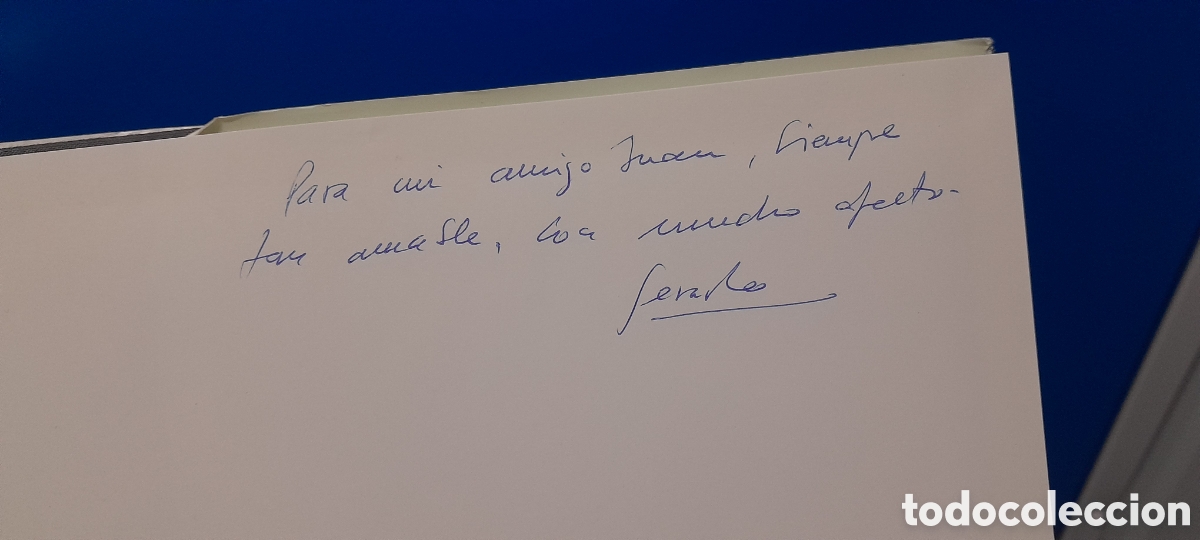 Para mi amigo Juan, siempre
tan amable, con mucho afecto.
Gerardo
todocoleccion